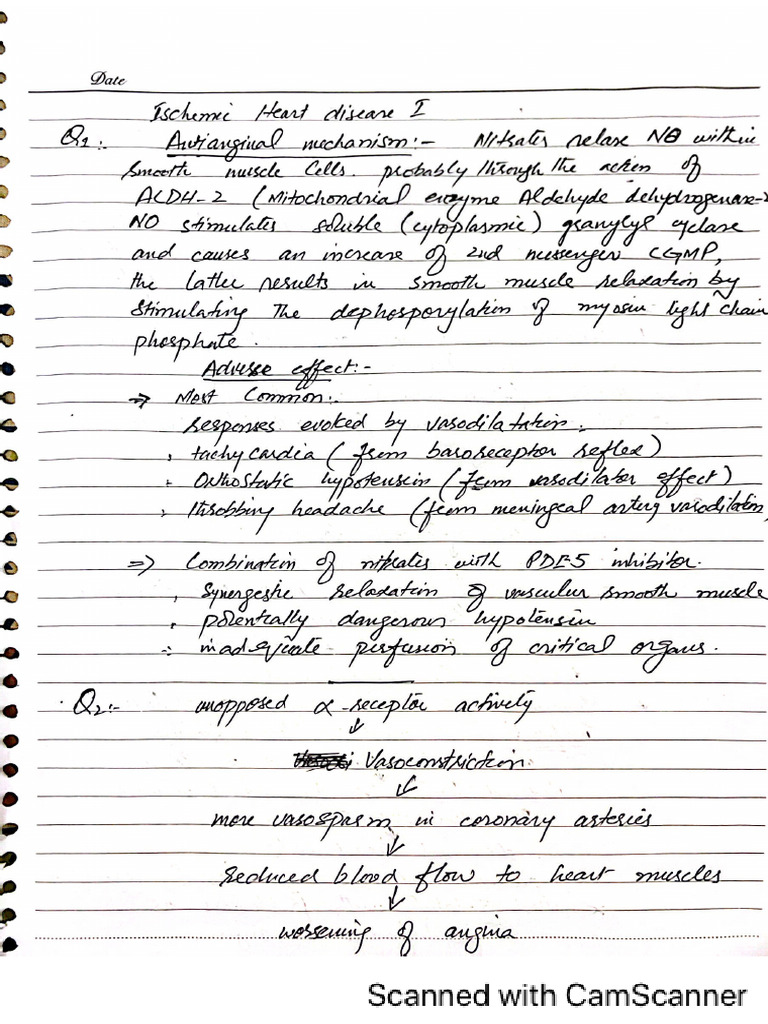 Date
Ischemic Heart disease I
Q1:- Antianginal mechanism:- Nitrates relase NO within
smooth muscle cells. probably through the action of
ALDH-2 (Mitochondrial enzyme Aldehyde dehydrogenase-2
NO stimulates soluble (cytoplasmic) guanylyl cyclase
and causes an increase of 2nd messenger CGMP,
the latter results in smooth muscle relaxation by
stimulating the dephosporylation of myosin light chain
phosphate.
Adverse effect:-
⇒ Most Common:.
responses evoked by vasodilatation.
. tachycardia (from baroreceptor reflex)
. Orthostatic hypotensin (from vasodilator effect)
. throbbing headache (from meningeal artery vasodilation)
⇒ Combination of nitrates with PDE-5 inhibitor.
. Synergestic relaxation of vascular smooth muscle
. potentially dangerous hypotensin
. inadequate perfusion of critical organs.
Q2:- unopposed α-receptor activity
↓
Vasoconstriction
↓
more vasospasm in coronary arteries
↓
Reduced blood flow to heart muscles
↓
worsening of angina
Scanned with CamScanner